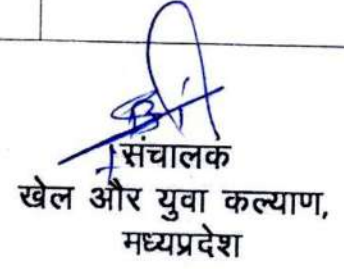 संचालक
खेल और युवा कल्याण,
मध्यप्रदेश